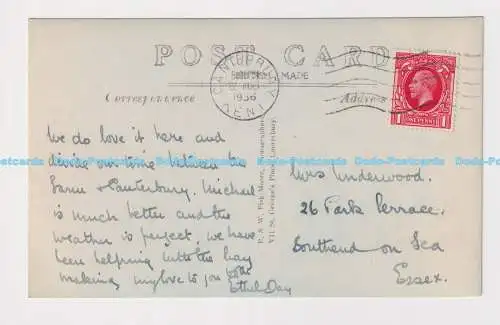 POST CARD
BRITISH MADE
CANTERBURY
1936
KENT
Correspondence
Address
ONE PENNY
We do love it here and
divide our time between the
farm & Canterbury. Michael
is much better and the
weather is perfect, we have
been helping with the hay
making, my love to you both
Ethel Day
P. & W. Fisk-Moore, Photographers,
VII. St. George's Place, Canterbury.
Mrs Underwood.
26 Park Terrace.
Southend on Sea
Essex.
Dodo-Postcards Dodo-Postcards Dodo-Postcards Dodo-Postcards Dodo-Postcards